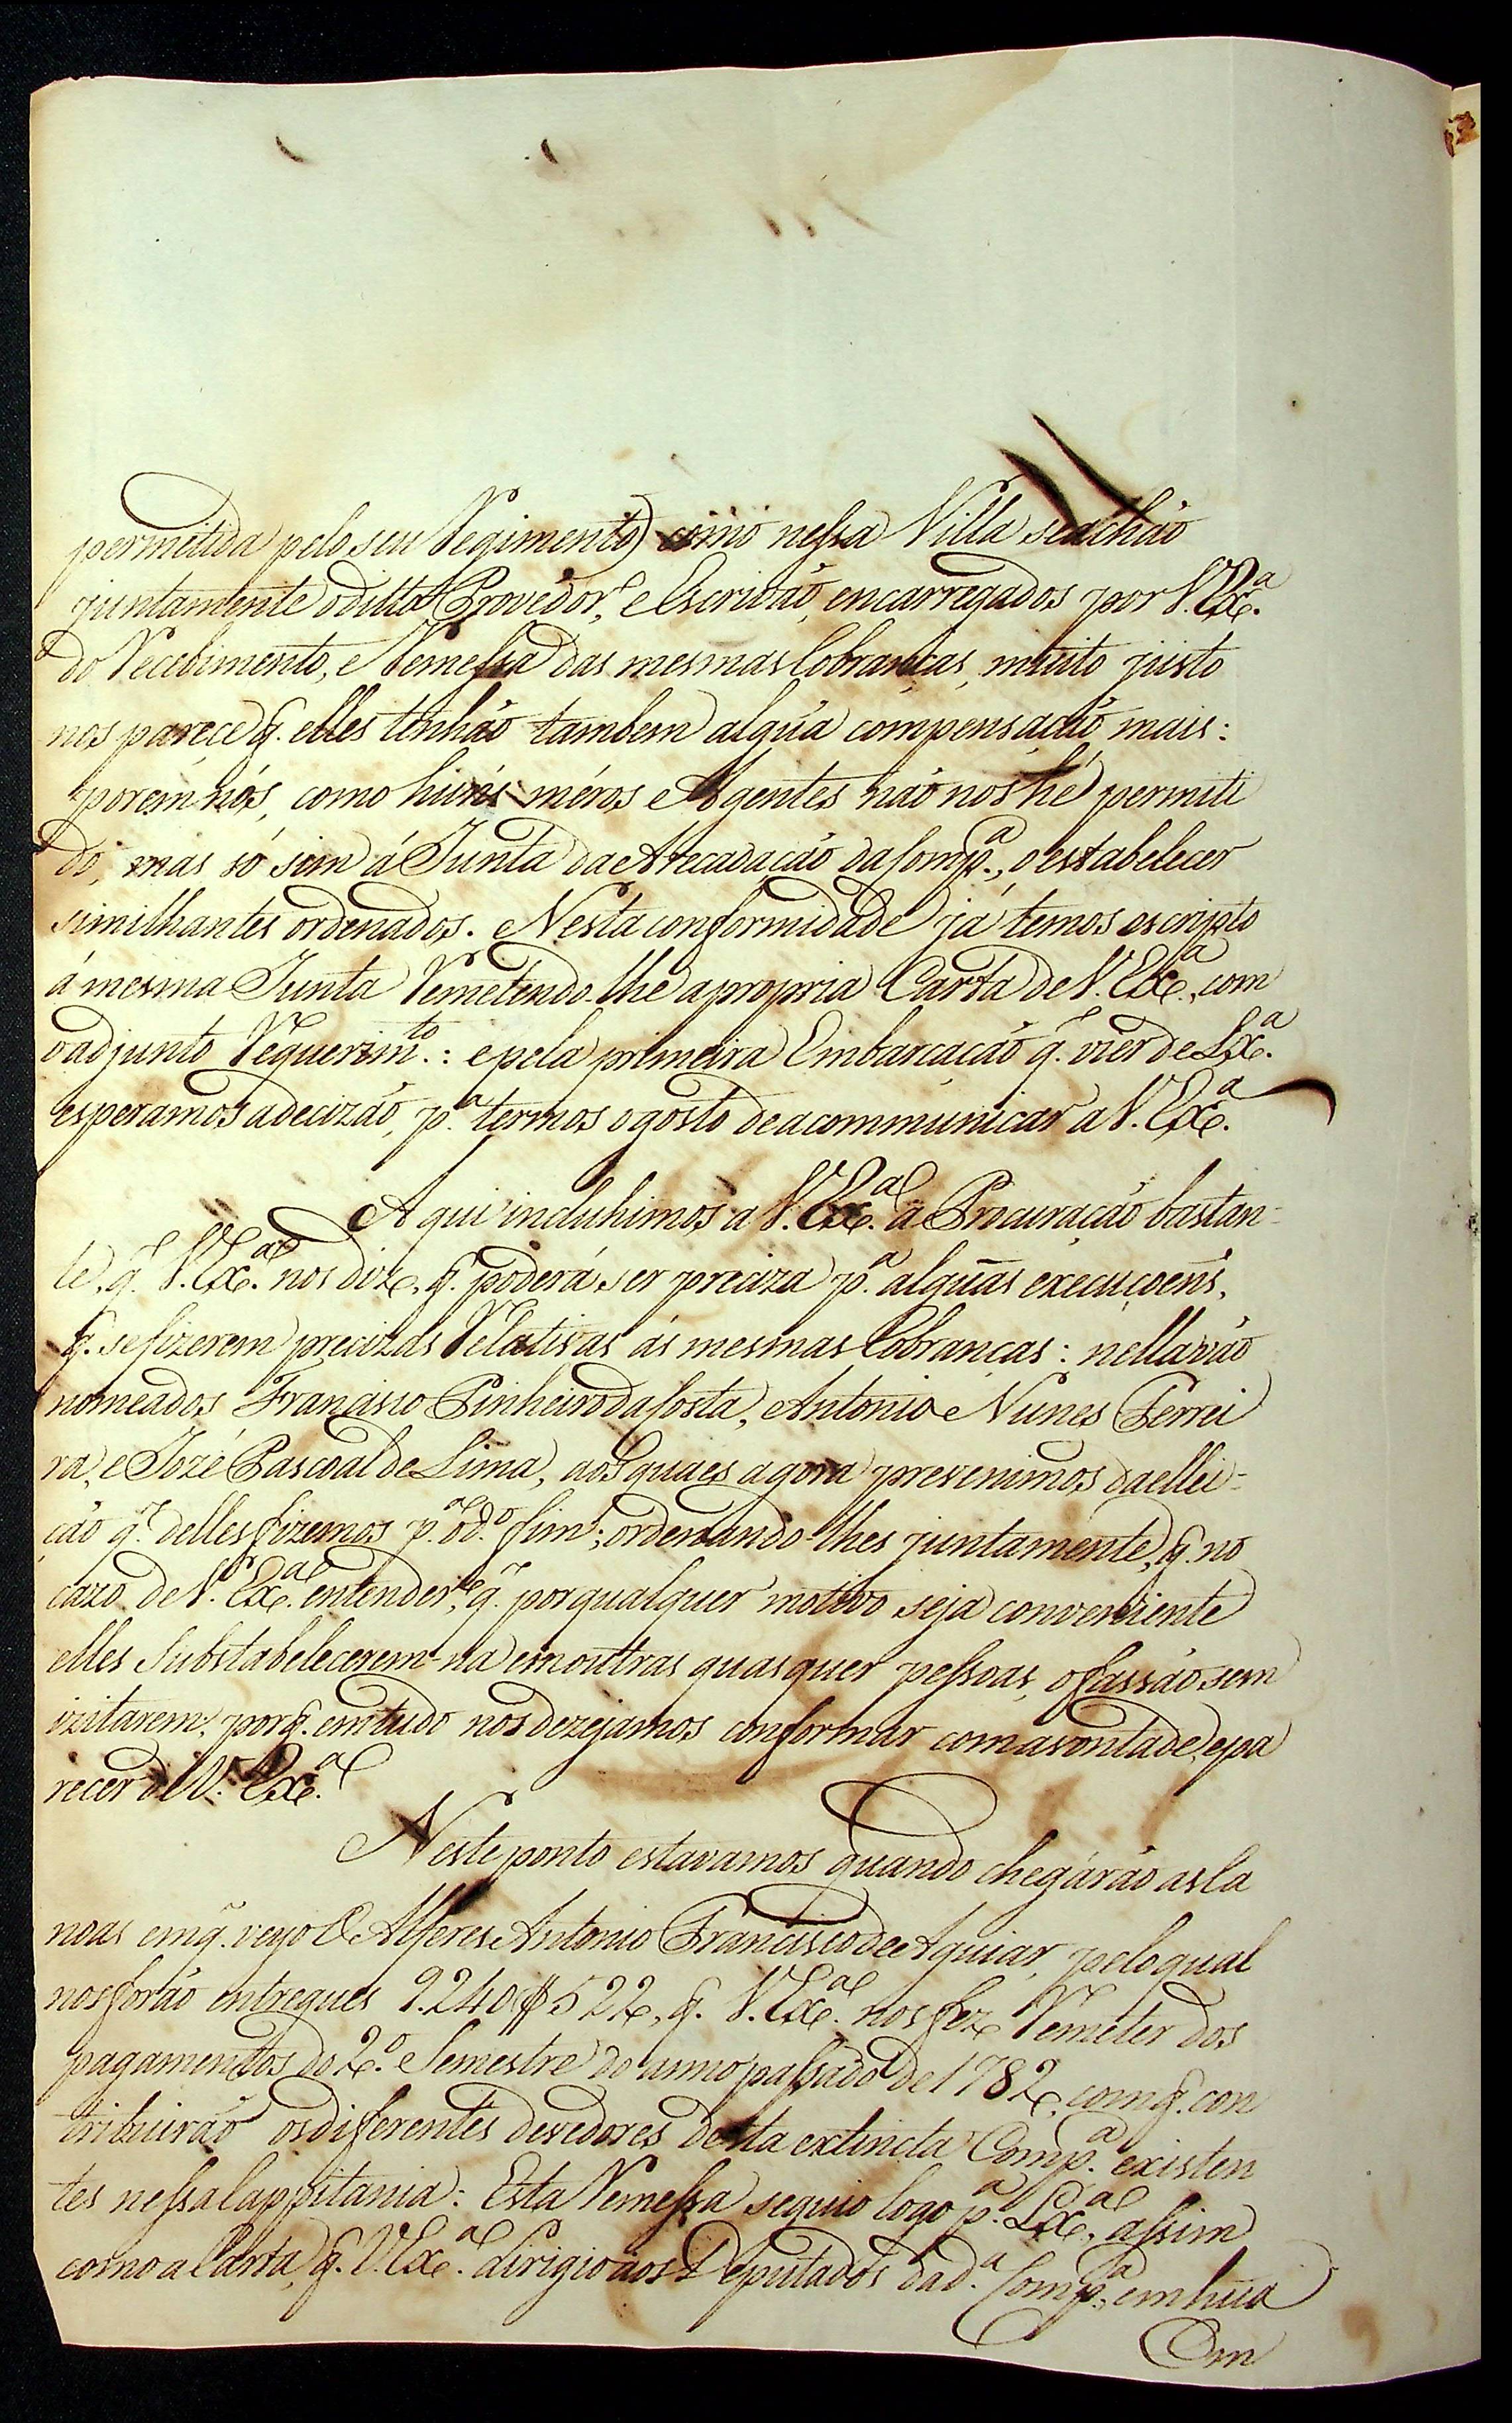 permetida pelo seu Regimento) como nessa Villa se achão
juntamente o ditto Provedor, e Escrivão, encarregados por V. Exª.
do Recebimento, e Remessa das mesmas Cobranças, muito justo
nos parece q. elles tenhão tambem algũa compensação mais:
porém nós, como huns méros Agentes não nos hé permiti
do, mas só sim á Junta da Arecadação da Compª., o estabelecer
similhantes ordenados. Nesta conformidade já temos escripto
á mesma Junta Remetendo-lhe a propria Carta de V. Exª., com
o adjunto Requerimto.: e pela primeira Embarcação q. vier de Lxª.
esperamos a decizão, pª. termos o gosto de a communicar a V. Exª.
Aqui incluhimos a V. Exª. a Procuração bastan-
te, q. V. Exª. nos diz, q. poderá ser preciza pª. algũas execuçoens,
q. se fizerem precizas Relativas ás mesmas Cobranças: nella vão
nomeados Francisco Pinheiro da Costa, Antonio Nunes Ferrei
ra, e Jozé Pascoal de Lima, aos quaes agora prevenimos da ellei-
ção q. delles fizemos pª. o dº. fim; ordenando-lhes juntamente, q. no
cazo de V. Exª. entender, q. por qualquer motivo seja conveniente
elles Substabelecerem-na em outras quasquer pessoas, o fassão sem
izitarem; porq. em tudo nos dezejamos conformar com a vontade, e pa
recer de V. Exª.
Neste ponto estavamos quando chegárão as Ca
noas em q. veyo o Alferes Antonio Francisco de Aguiar, pelo qual
nos forão entregues 9.240$522, q. V. Exª. nos fez Remeter dos
pagamentos do 2º. Semestre do anno passado de 1782, com q. con
tribuirão os diferentes devedores desta extincta Compª. existen
tes nessa Cappitania: Esta Remessa seguio logo pª. Lxª., assim
como a Carta, q. V. Exª. dirigio aos Deputados da dª. Compª., em hũa
Em